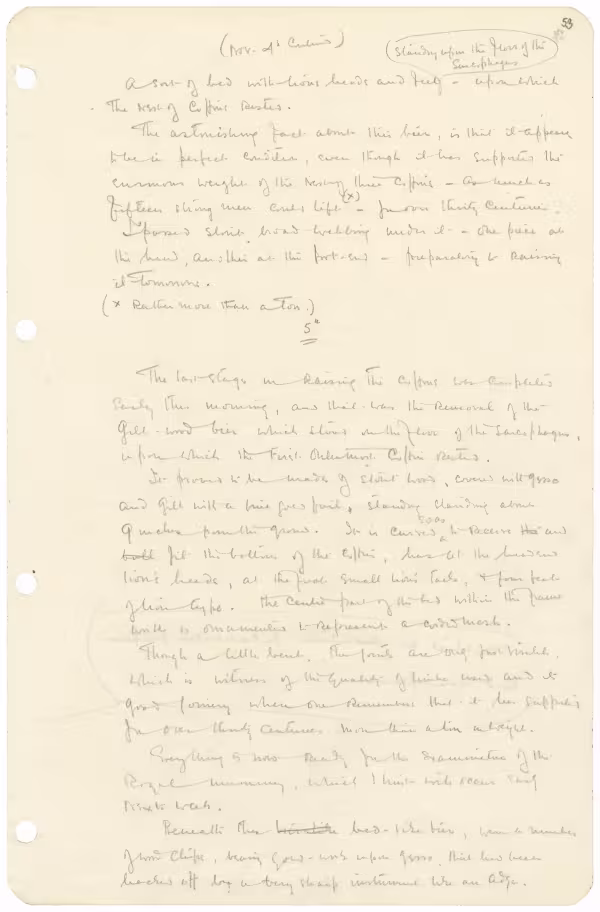 53
(Nov. 4th Continued)
(Standing upon the floor of the
Sarcophagus
A sort of bed with lions heads and feet – upon which
the nest of Coffins rested.
The astonishing fact about this bier, is that it appears
to be in perfect condition, even though it has supported the
enormous weight of the nest of three Coffins – as much as
fifteen strong men could lift (x) – for over thirty centuries.
I passed stout broad webbing under it – one piece at
the head, another at the foot-end – preparatory to raising
it tomorrow.
(x Rather more than a ton.)
5th
The last stage in raising the coffins was completed
early this morning, and that was the removal of the
Gilt-wood bier which stood on the floor of the Sarcophagus,
upon which the First Outermost Coffin rested.
It proved to be made of stout wood, covered with gesso
and gilt with a fine gold foil, standing about
9 inches from the ground. It is curved so as to receive and
fit the bottom of the coffin, has at the head-end
lion's heads, at the foot small lion's tails, & four feet
of lion type. The centre part of the bed within the frame
work is ornamented to represent a cord mesh.
Though a little bent, the joints are only just visible,
which is witness of the quality of timber used and its
good joinery when one remembers that it has supported
for over thirty centuries more than a ton in weight.
Everything is now ready for the examination of the
Royal mummy, which I think will occur early
next week.
Beneath this bed-like bier, were a number
of wood chips, bearing gold-work upon gesso, that had been
hacked off by a very sharp instrument like an adze.